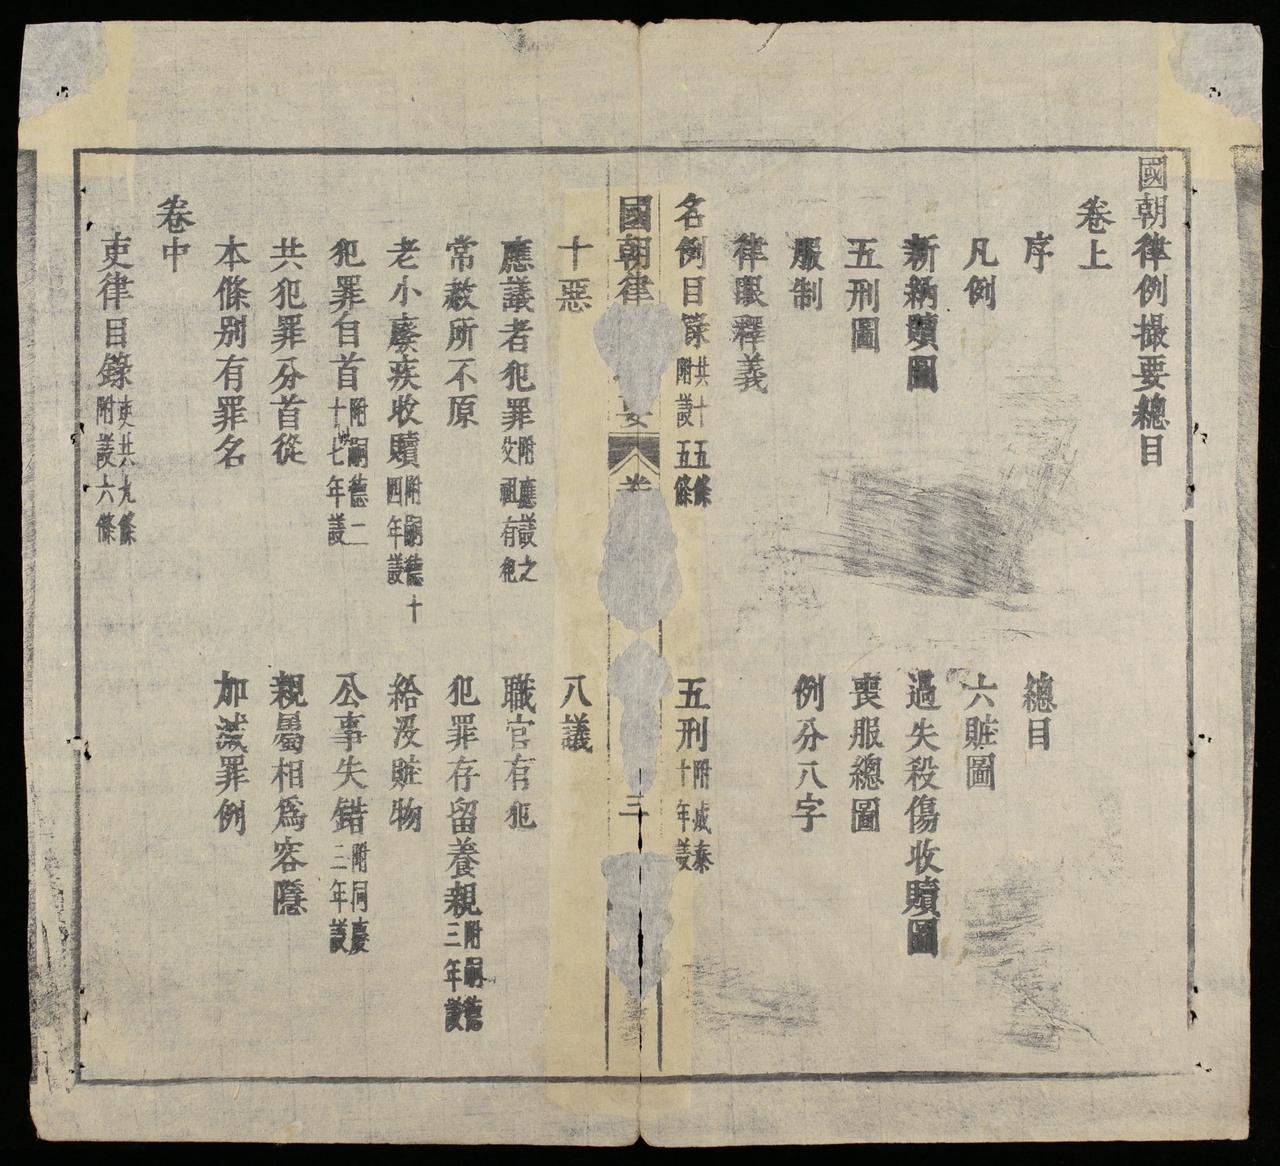 國朝律例撮要總目
卷上
序　總目
凡例　六贓圖
新納贖圖　過失殺傷收贖圖
五刑圖　喪服總圖
服制　例分八字
律眼釋義
名例目錄共十五條附議五條　五刑附成泰十年議
國朝律　要　卷　三
十惡　八議
應議者犯罪附應議之父祖有犯　職官有犯
常赦所不原　犯罪存留養親附嗣德三年議
老小廢疾收贖附嗣德十四年議　給沒贓物
犯罪自首附嗣德二十七年議　公事失錯附同慶二年議
共犯罪分首從　親屬相爲容隱
本條別有罪名　加減罪例
卷中
吏律目錄吏共九條附議六條